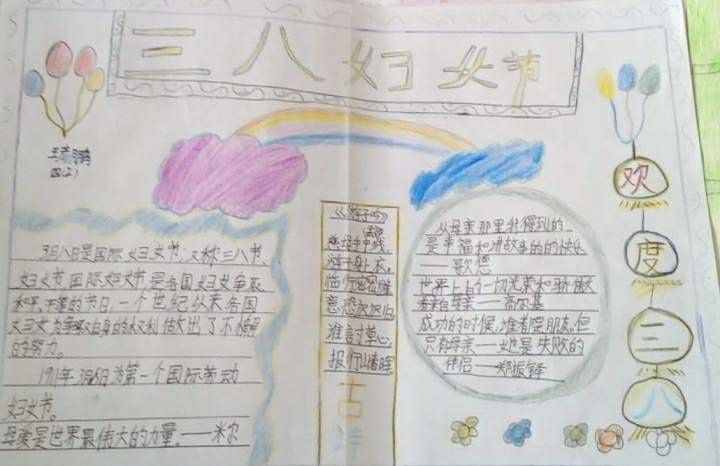 三八妇女节
四(2)
3月八日是国际妇女节,又称三八节,
妇女节国际妇女节是各国妇女争取
和平、平等的节日,一个世纪以来各国
妇女为争取自身的权利做出了不懈
的努力。
1911年3月8日为第一个国际劳动
妇女节。
母亲是世界最伟大的力量。——米尔
《游子吟》
慈母手中线,
游子身上衣。
临行密密缝,
意恐迟迟归。
谁言寸草心,
报得三春晖
古
诗
从母亲那里我得到的
是幸福和讲故事的快乐
——歌德
世界上的一切光荣和骄傲
都来自母亲——高尔基
成功的时候,谁都是朋友。但
只有母亲——她是失败的
伴侣——郑振铎
欢
度
三
八